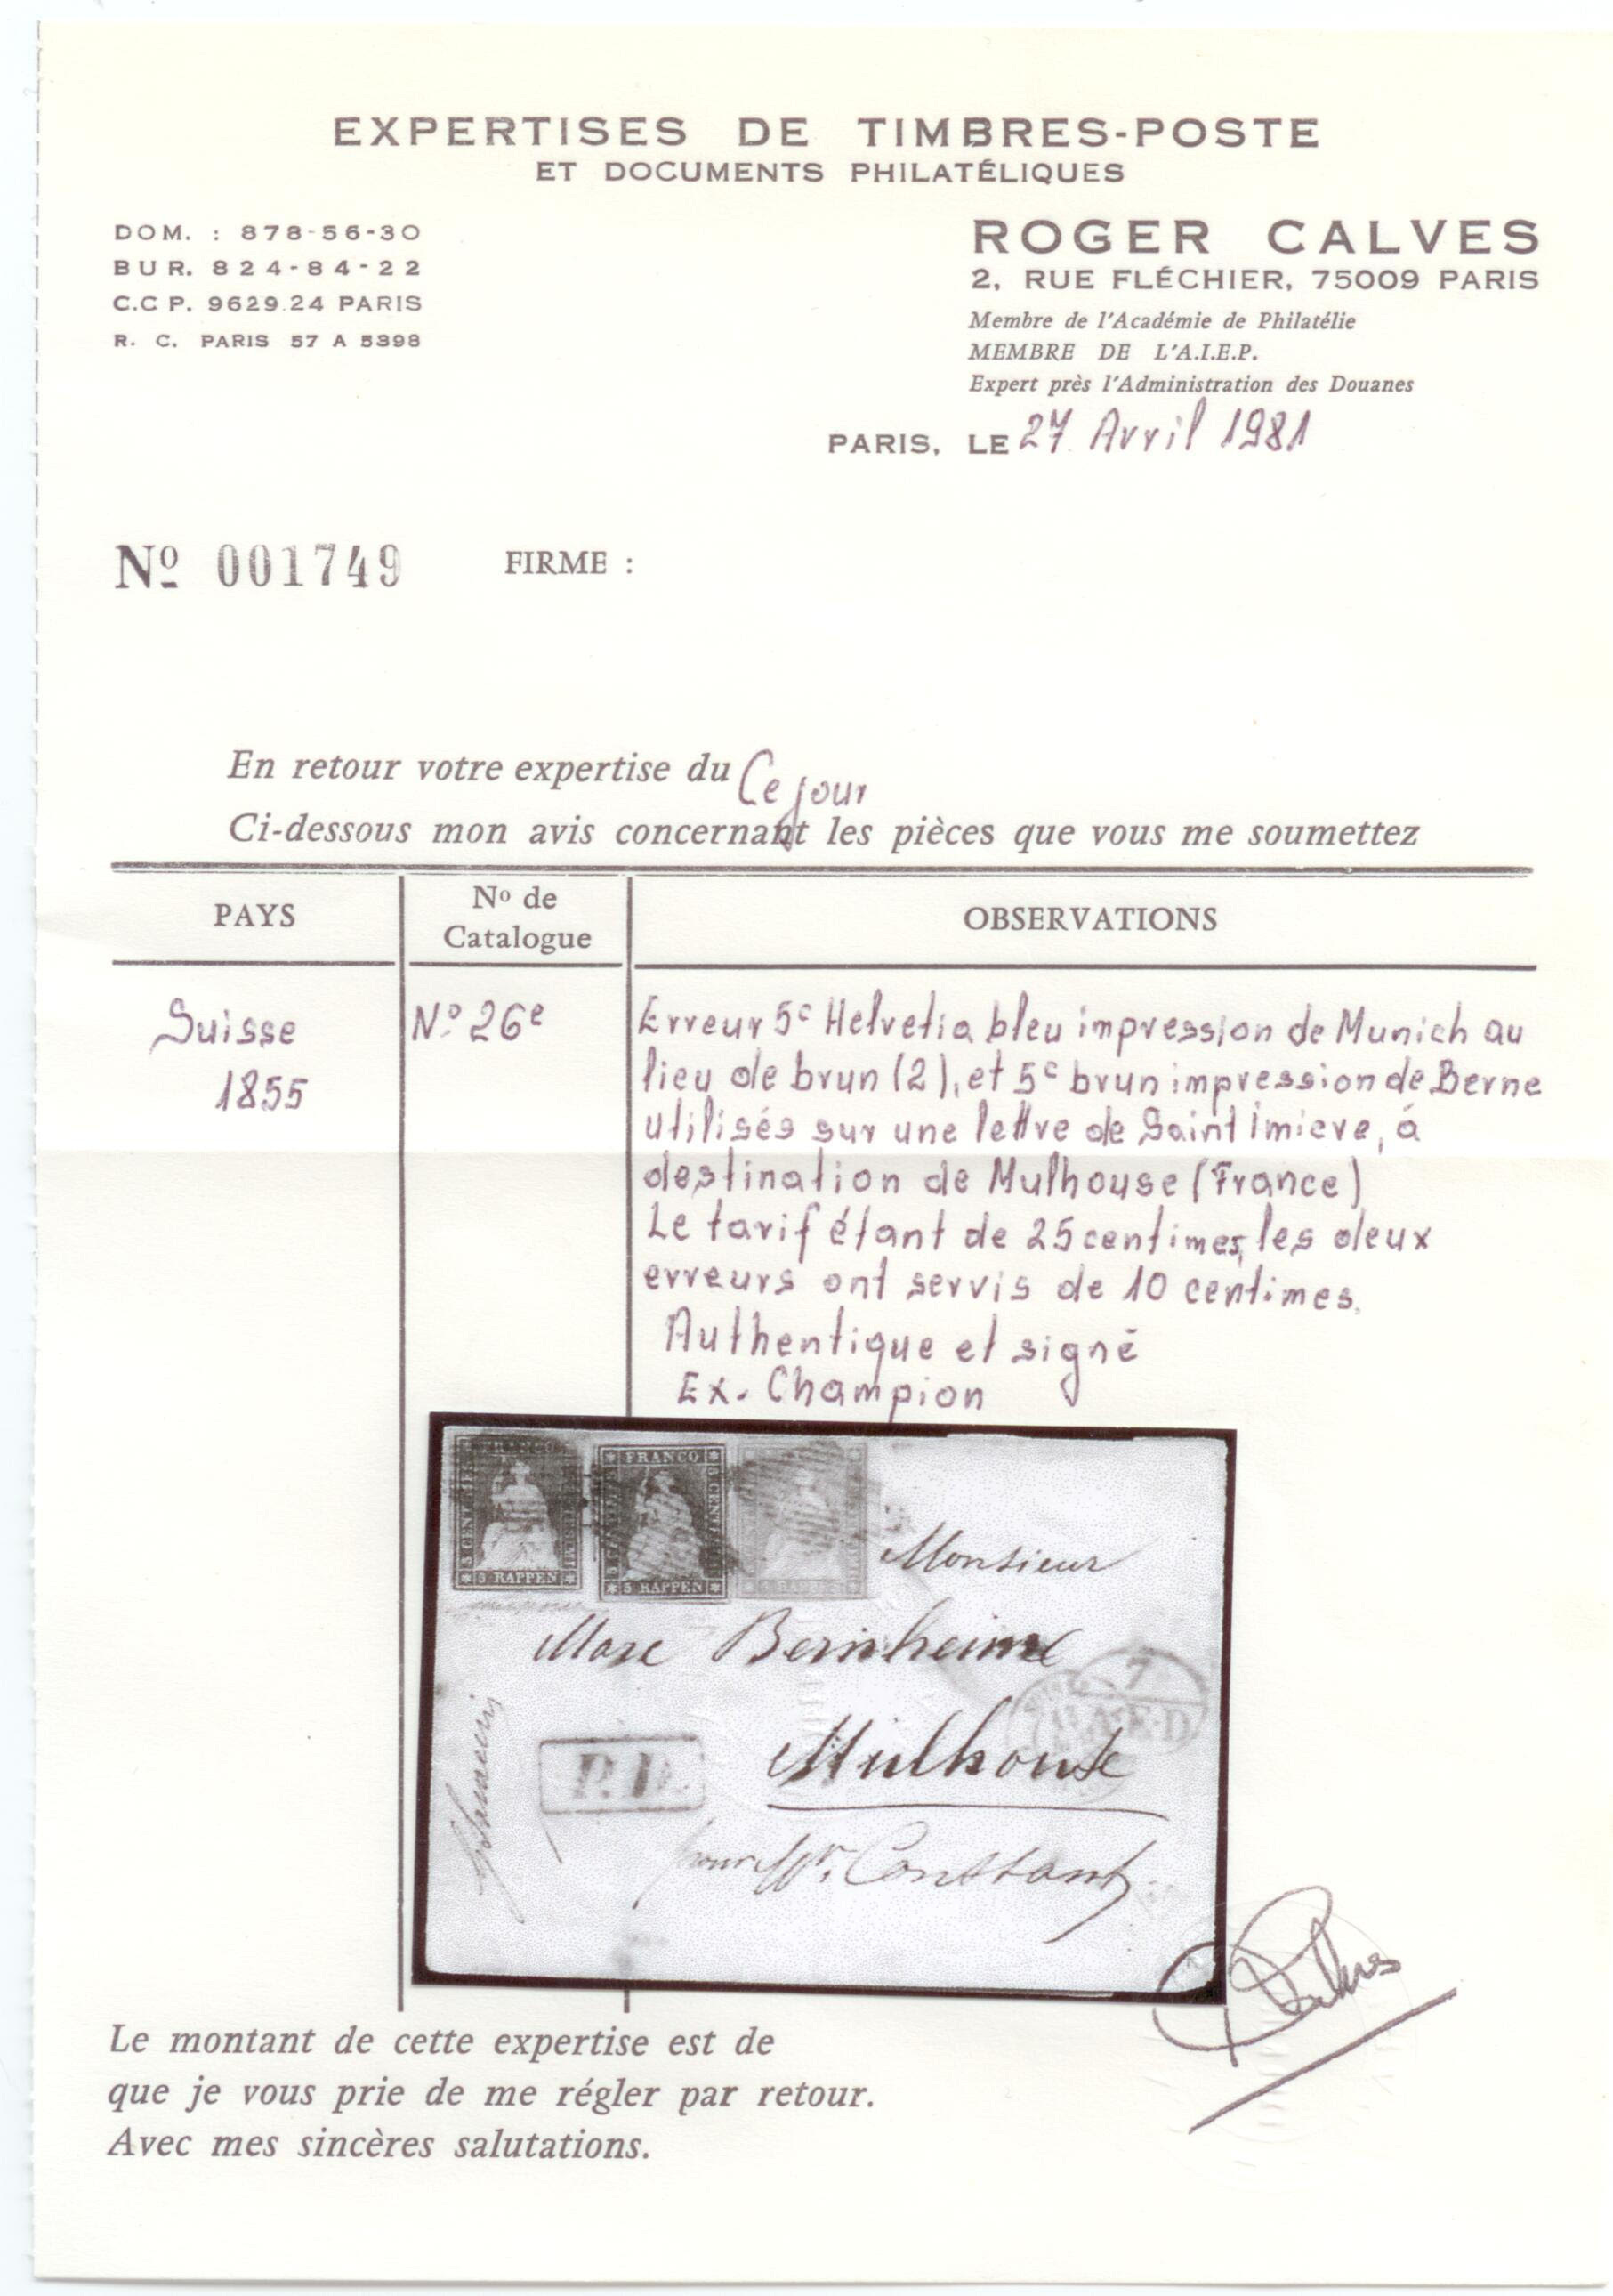 EXPERTISES DE TIMBRES-POSTE
ET DOCUMENTS PHILATÉLIQUES
DOM. : 878-56-30
BUR. 824-84-22
C.C P. 9629.24 PARIS
R. C. PARIS 57 A 5398
ROGER CALVES
2, RUE FLÉCHIER, 75009 PARIS
Membre de l'Académie de Philatélie
MEMBRE DE L'A.I.E.P.
Expert près l'Administration des Douanes
PARIS, LE 27 Avril 1981
Nº 001749 FIRME :
En retour votre expertise du Ce jour
Ci-dessous mon avis concernant les pièces que vous me soumettez
PAYS
Nº de
Catalogue
OBSERVATIONS
Suisse
1855
Nº 26e
Erreur 5c Helvetia bleu impression de Munich au
lieu de brun (2), et 5c brun impression de Berne
utilisés sur une lettre de Saint Imiere, à
destination de Mulhouse (France)
Le tarif étant de 25 centimes, les deux
erreurs ont servis de 10 centimes.
Authentique et signé
Ex. Champion
FRANCO
5 RAPPEN
FRANCO
5 RAPPEN
5 RAPPEN
Monsieur
Marc Bernheim
7
A.E.D
P.D.
Mulhouse
pour Mr. Constant
Le montant de cette expertise est de
que je vous prie de me régler par retour.
Avec mes sincères salutations.